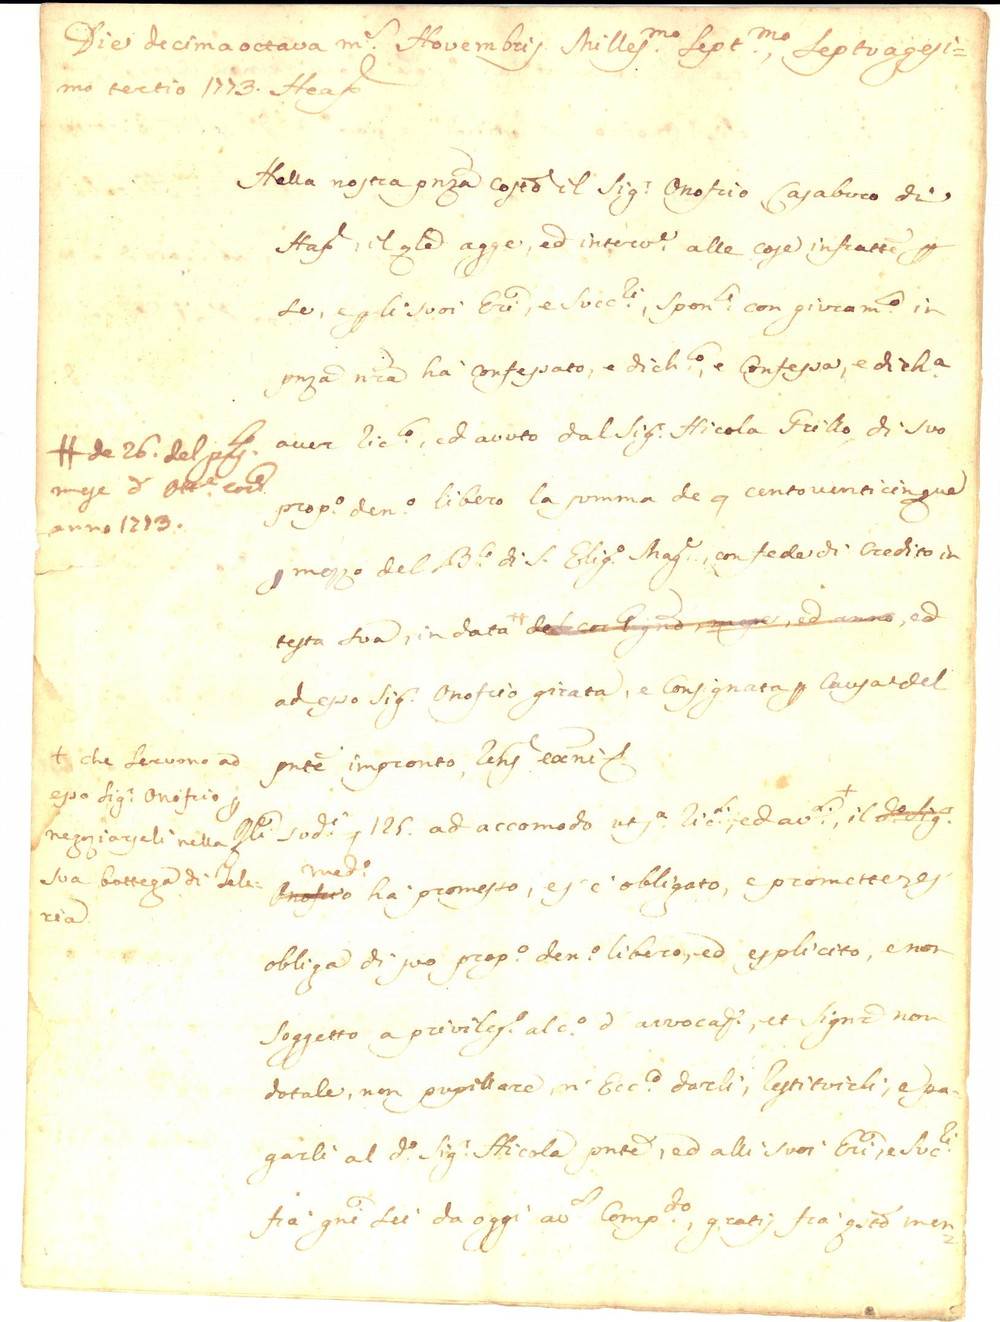 Die decimaoctava m.s Novembris Milles.mo Sept.mo, Septuagesi=
mo tertio 1773. Neap.
Nella nostra pnza cost.o il Sig.r Onofrio Casaburo di
Nap., il qle agge, ed interv.e alle cose infratte p
se, e p li suoi Eri, e Succ.ri, spon.te con giuram.to in
pnza nra ha confessato, e dich.to, e confessa, e dich.a
# de 26. del p.p.
mese d' Ott.e cor.te
anno 1773.
aver ric.to, ed avuto dal Sig.r Nicola Grillo di suo
prop.o den.o libero la summa de q centoventicinque
p mezzo del B.co di S. Elig.o Mag.e, con fede di Credito in
testa sua, in data # del corr. mese, ed anno, ed
ad esso Sig.r Onofrio girata, e consignata p causa del
pnte impronto,
+ che servono ad
esso Sig.r Onofrio p
negoziarseli nella
sua bottega di Tele=
ria
Qli sud.i q 125. ad accomodo ut s.a ric.ti, ed av.ti +, il d.o Sig.r
med.o
Onofrio ha promesso, e s'è obligato, e promette, e s'
obliga di suo prop.o den.o libero, ed esplicito, e non
soggetto a privileg.o alc.o d' arrocaz., et signr non
dotale, non pupillare, n' Ecc.o darli, restituirli, e pa=
garli al d.o Sig.r Nicola pnte, ed alli suoi Eri, e Succ.ri
fra gni sei da oggi av.ti comp.do, gratis fra qsto men=